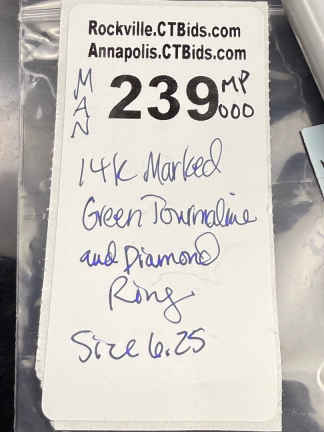 Rockville.CTBids.com
Annapolis.CTBids.com
MAN 239 MP 000
14k Marked
Green Tourmaline
and Diamond
Ring
Size 6.25